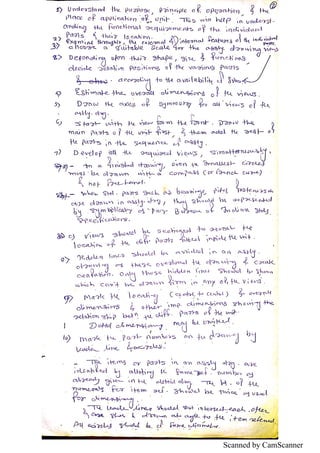 1) Understand the purpose, principle of operation, & the
place of application of unit. This will help in understand-
ing the functional requirements of the individual
parts & their location.
2) Examine thoroughly, the external & internal features of the individual
3) Choose a suitable scale for the assly drawing parts
3) Depending upon their shape, size & functions
decide relative positions of the various parts
according to the availability of
4) Estimate the overall dimensions of the views.
5) Draw the axes of symmetry for all views of the
assly. drg.
6) Start with the view from the front. Draw the
main parts of the unit first & then add the rest of
the parts in the sequence of assly.
7) Develop all the required views, simultaneously.
In a finished drawing, even the smallest circles
must be drawn with a compass (or french curve)
& not free hand.
When std. parts such as bearings, fasteners
are drawn in assly drg, they should be represented
by as per Bureau of Indian Stds
specifications.
c) Views should be sectioned to reveal the
location of the diff. parts placed inside the unit.
e) Hidden lines should be avoided in an assly.
drawing as these overload the drawing & create
confusion. Only those hidden lines should be shown
which can't be drawn in any of the views.
9) Mark the locating (centre to centre) & overall
dimensions & other imp dimensions showing the
relationship betn the diff. parts of the unit.
Detail dimensioning may be omitted.
10) Mark the part numbers on the drawing by
leader line & circles.
- The items or parts in an assly drg. are
identified by allotting the same number as
already given in the detail drg. The ht. of the
numerals for item ref. should be twice as used
for dimensioning.
& The leader lines should not intersect each other
& are drawn at angle to the item referred.
All circles should be of same diameter.
Scanned by CamScanner